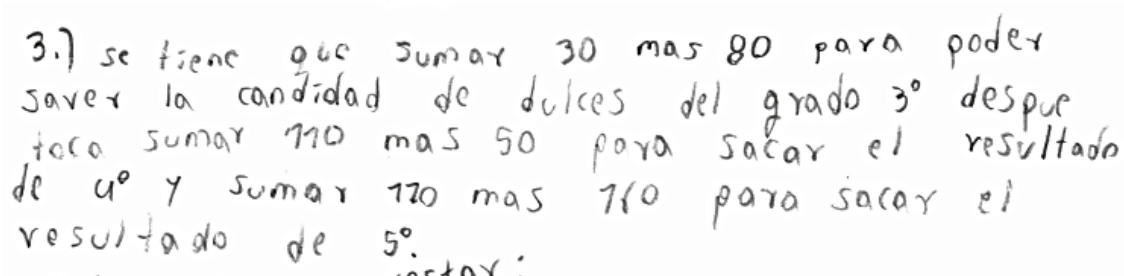 3.) se tiene que sumar 30 mas 80 para poder
saver la candidad de dulces del grado 3° despue
toca sumar 110 mas 50 para sacar el resultado
de 4° y sumar 110 mas 160 para sacar el
resultado de 5°.